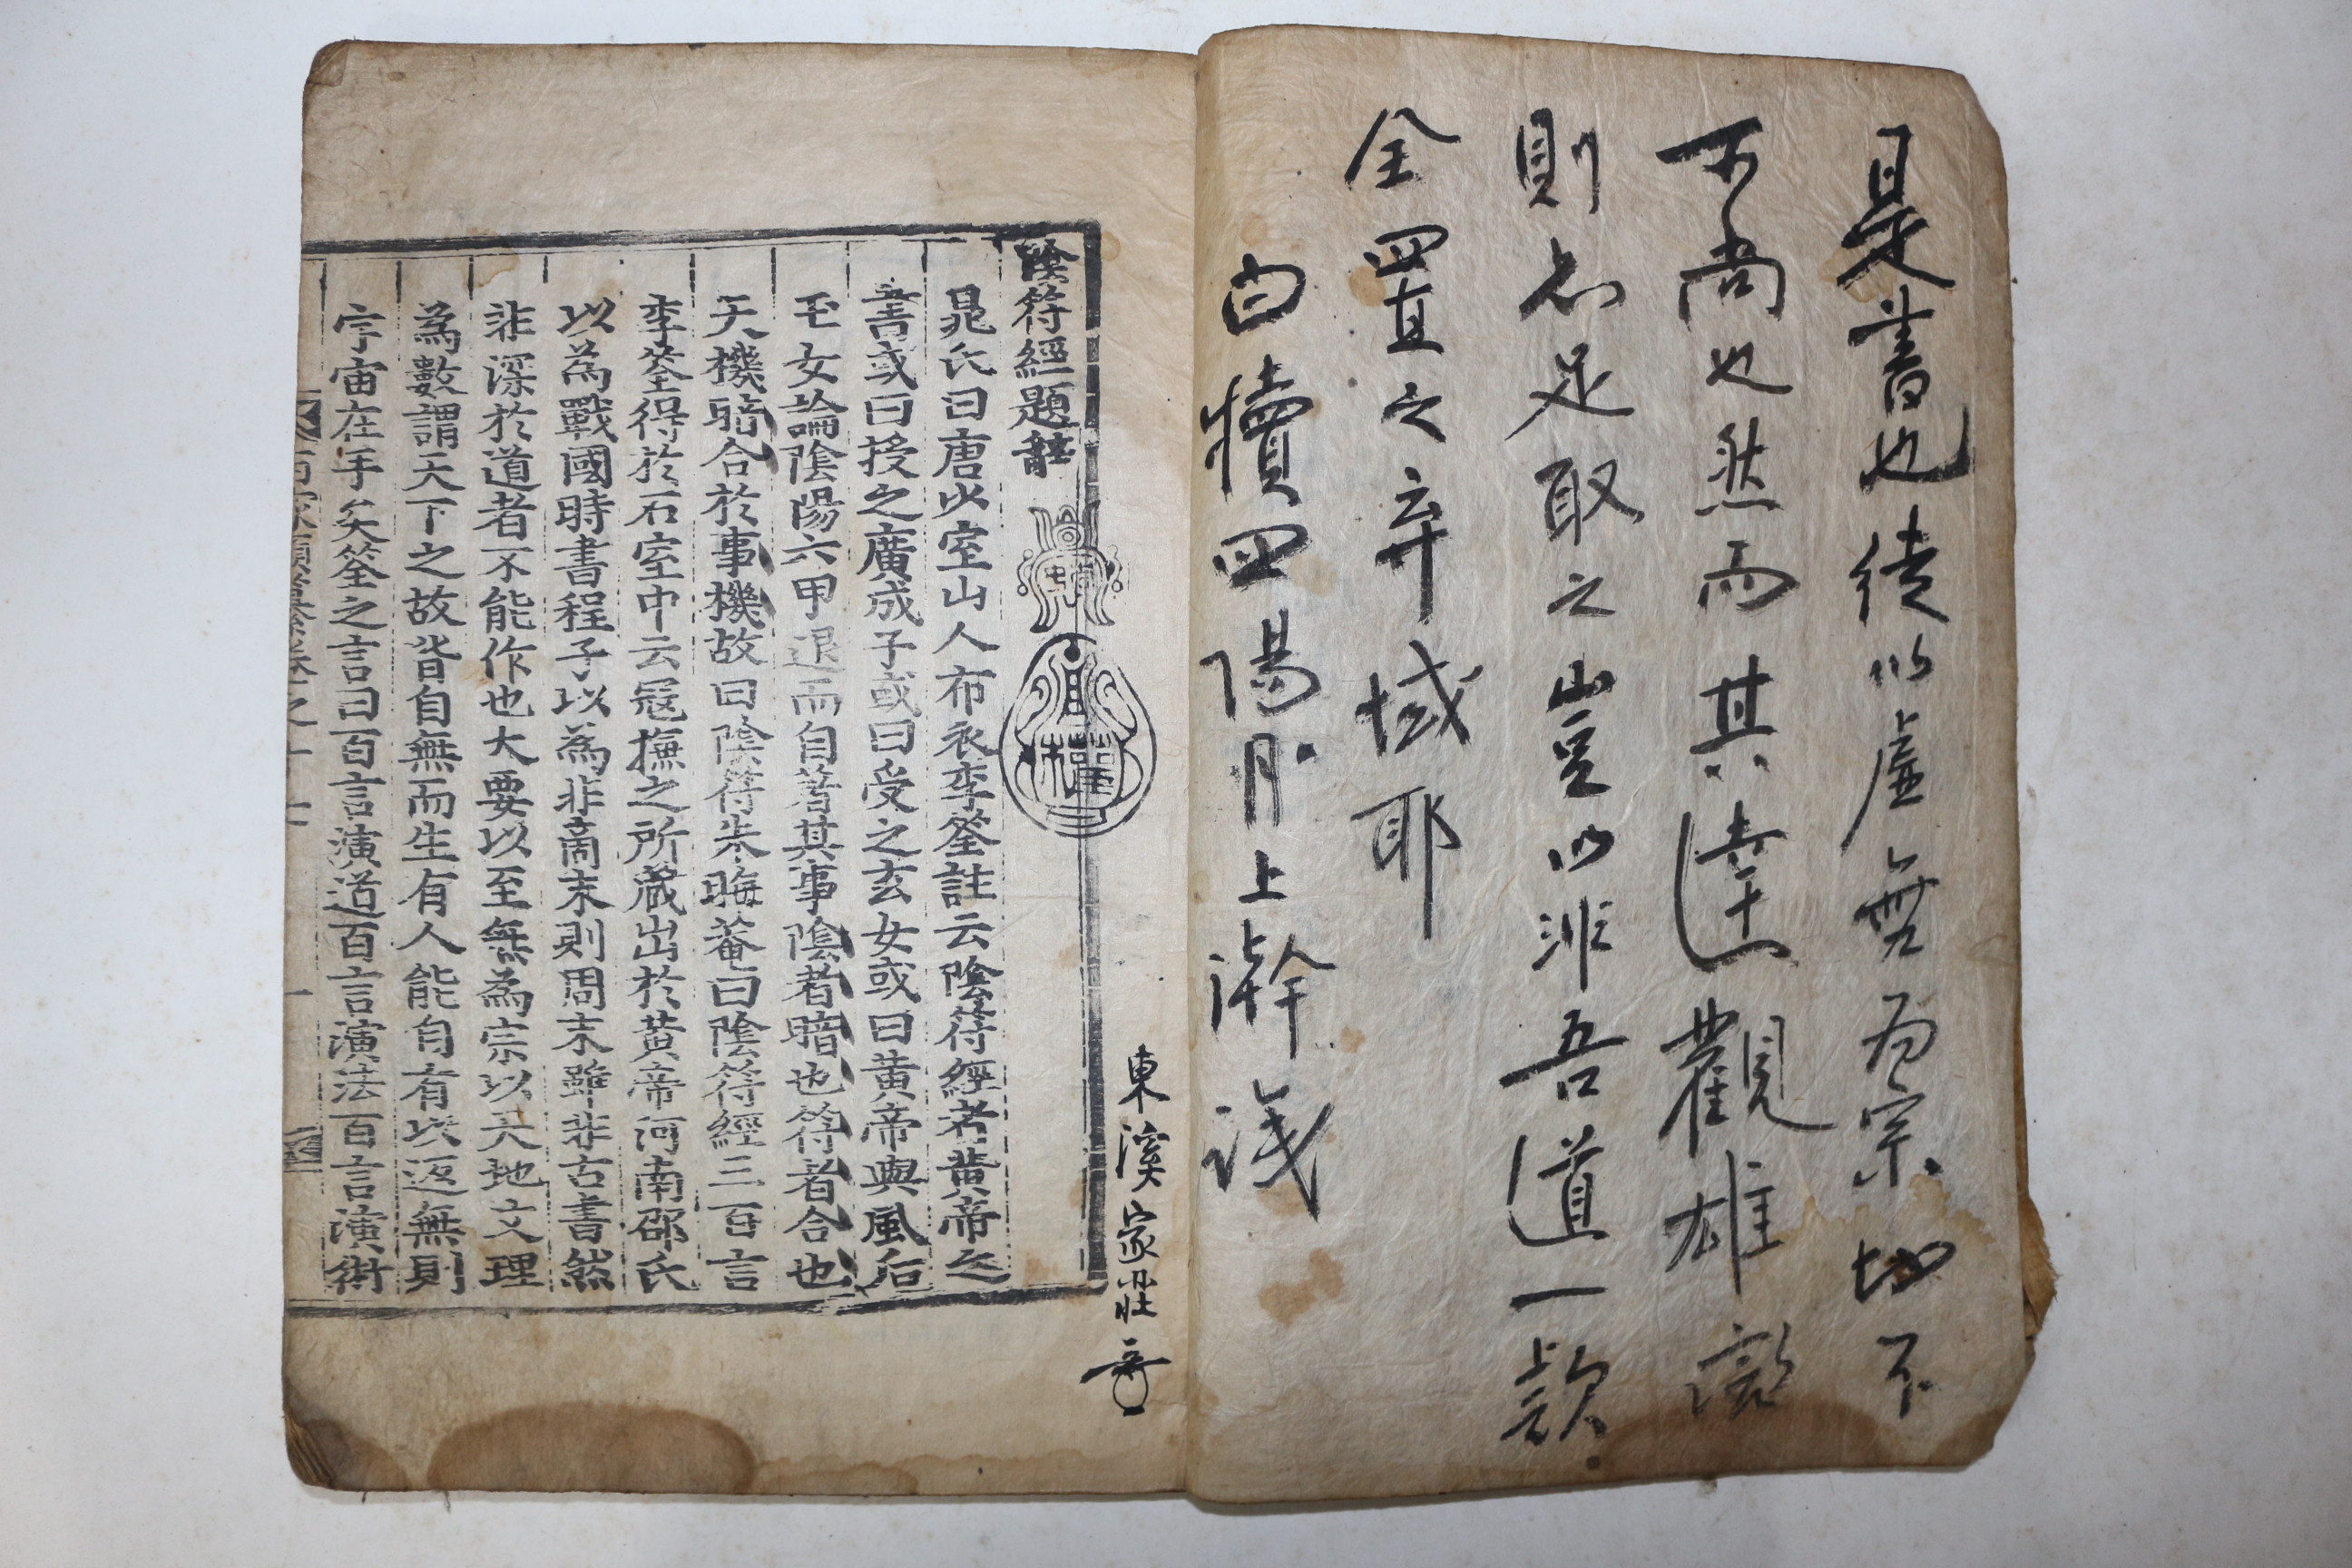 是書也徒以虛無爲宗切不
可尚也然而其達觀雄詞
則亦足取之豈以非吾道一款
全置之弃域耶
白犢四陽月上澣識
東溪家莊
陰符經題辭
晁氏曰唐少室山人布衣李筌註云陰符經者黃帝之
書或曰授之廣成子或曰受之玄女或曰黃帝與風后
玉女論陰陽六甲退而自著其事陰者暗也符者合也
天機暗合於事機故曰陰符朱晦菴曰陰符經三百言
李筌得於石室中云寇謙之所藏出於黃帝河南邵氏
以為戰國時書程子以為非商末則周末雖非古書然
非深於道者不能作也大要以至無為宗以天地文理
為數謂天下之故皆自無而生有人能自有以返無則
宇宙在手矣筌之言曰百言演道百言演法百言演術
百家類纂卷之十七